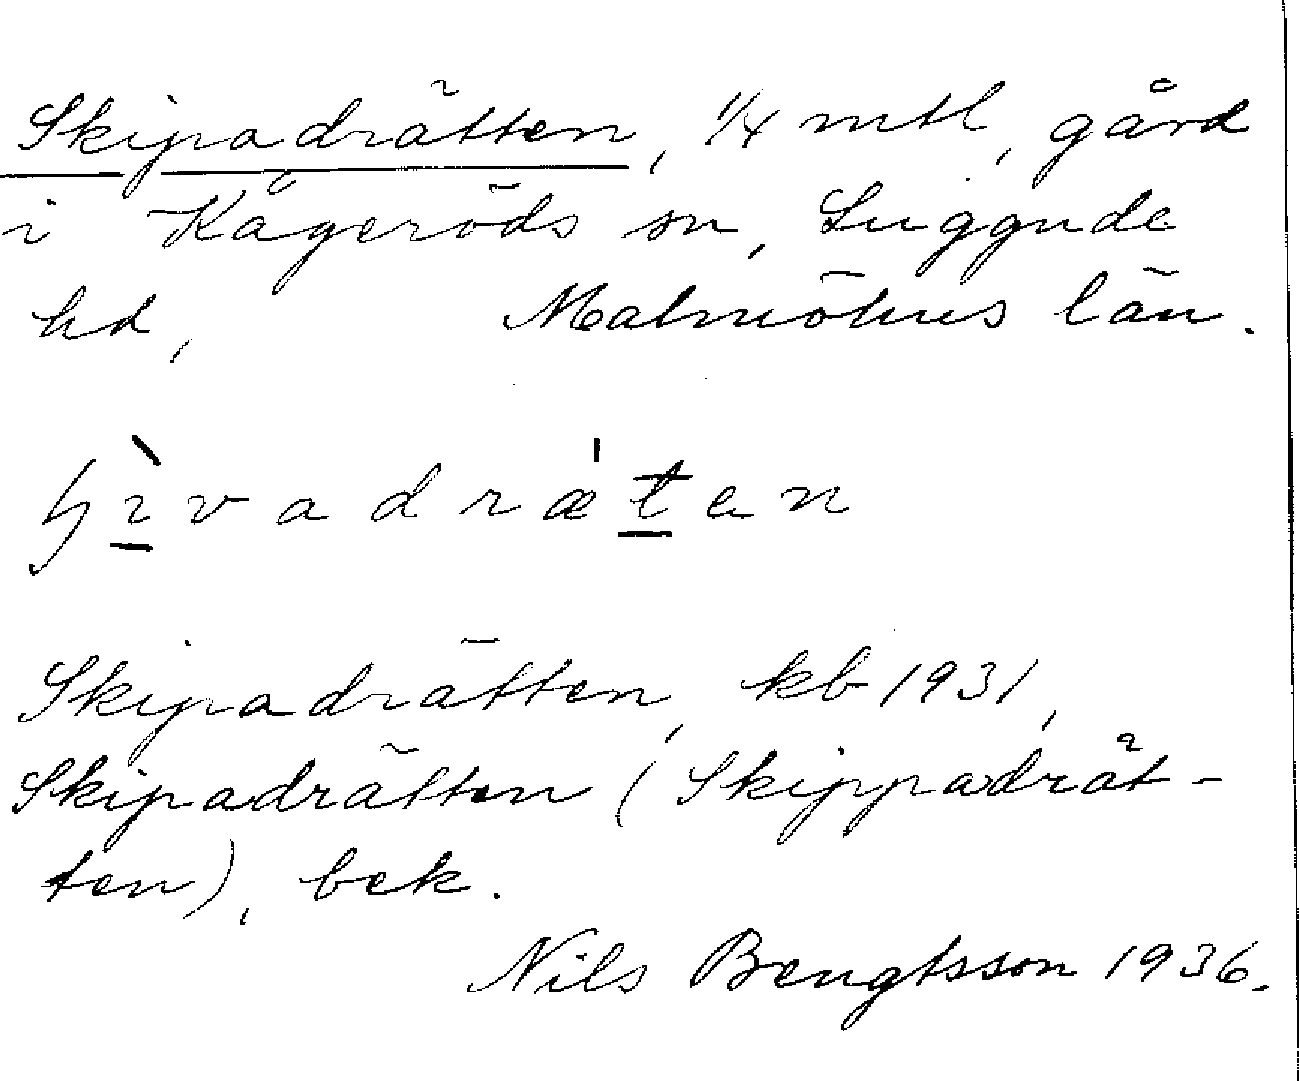 Skipadrätten, 1/4 mtl, gård
i Kågeröds sn, Luggude
hd, Malmöhus län.
ɧìvadræ̍ten
Skipadrätten, kb 1931,
Skipadrätten (Skippadråt-
ten), bek.
Nils Bengtsson 1936.